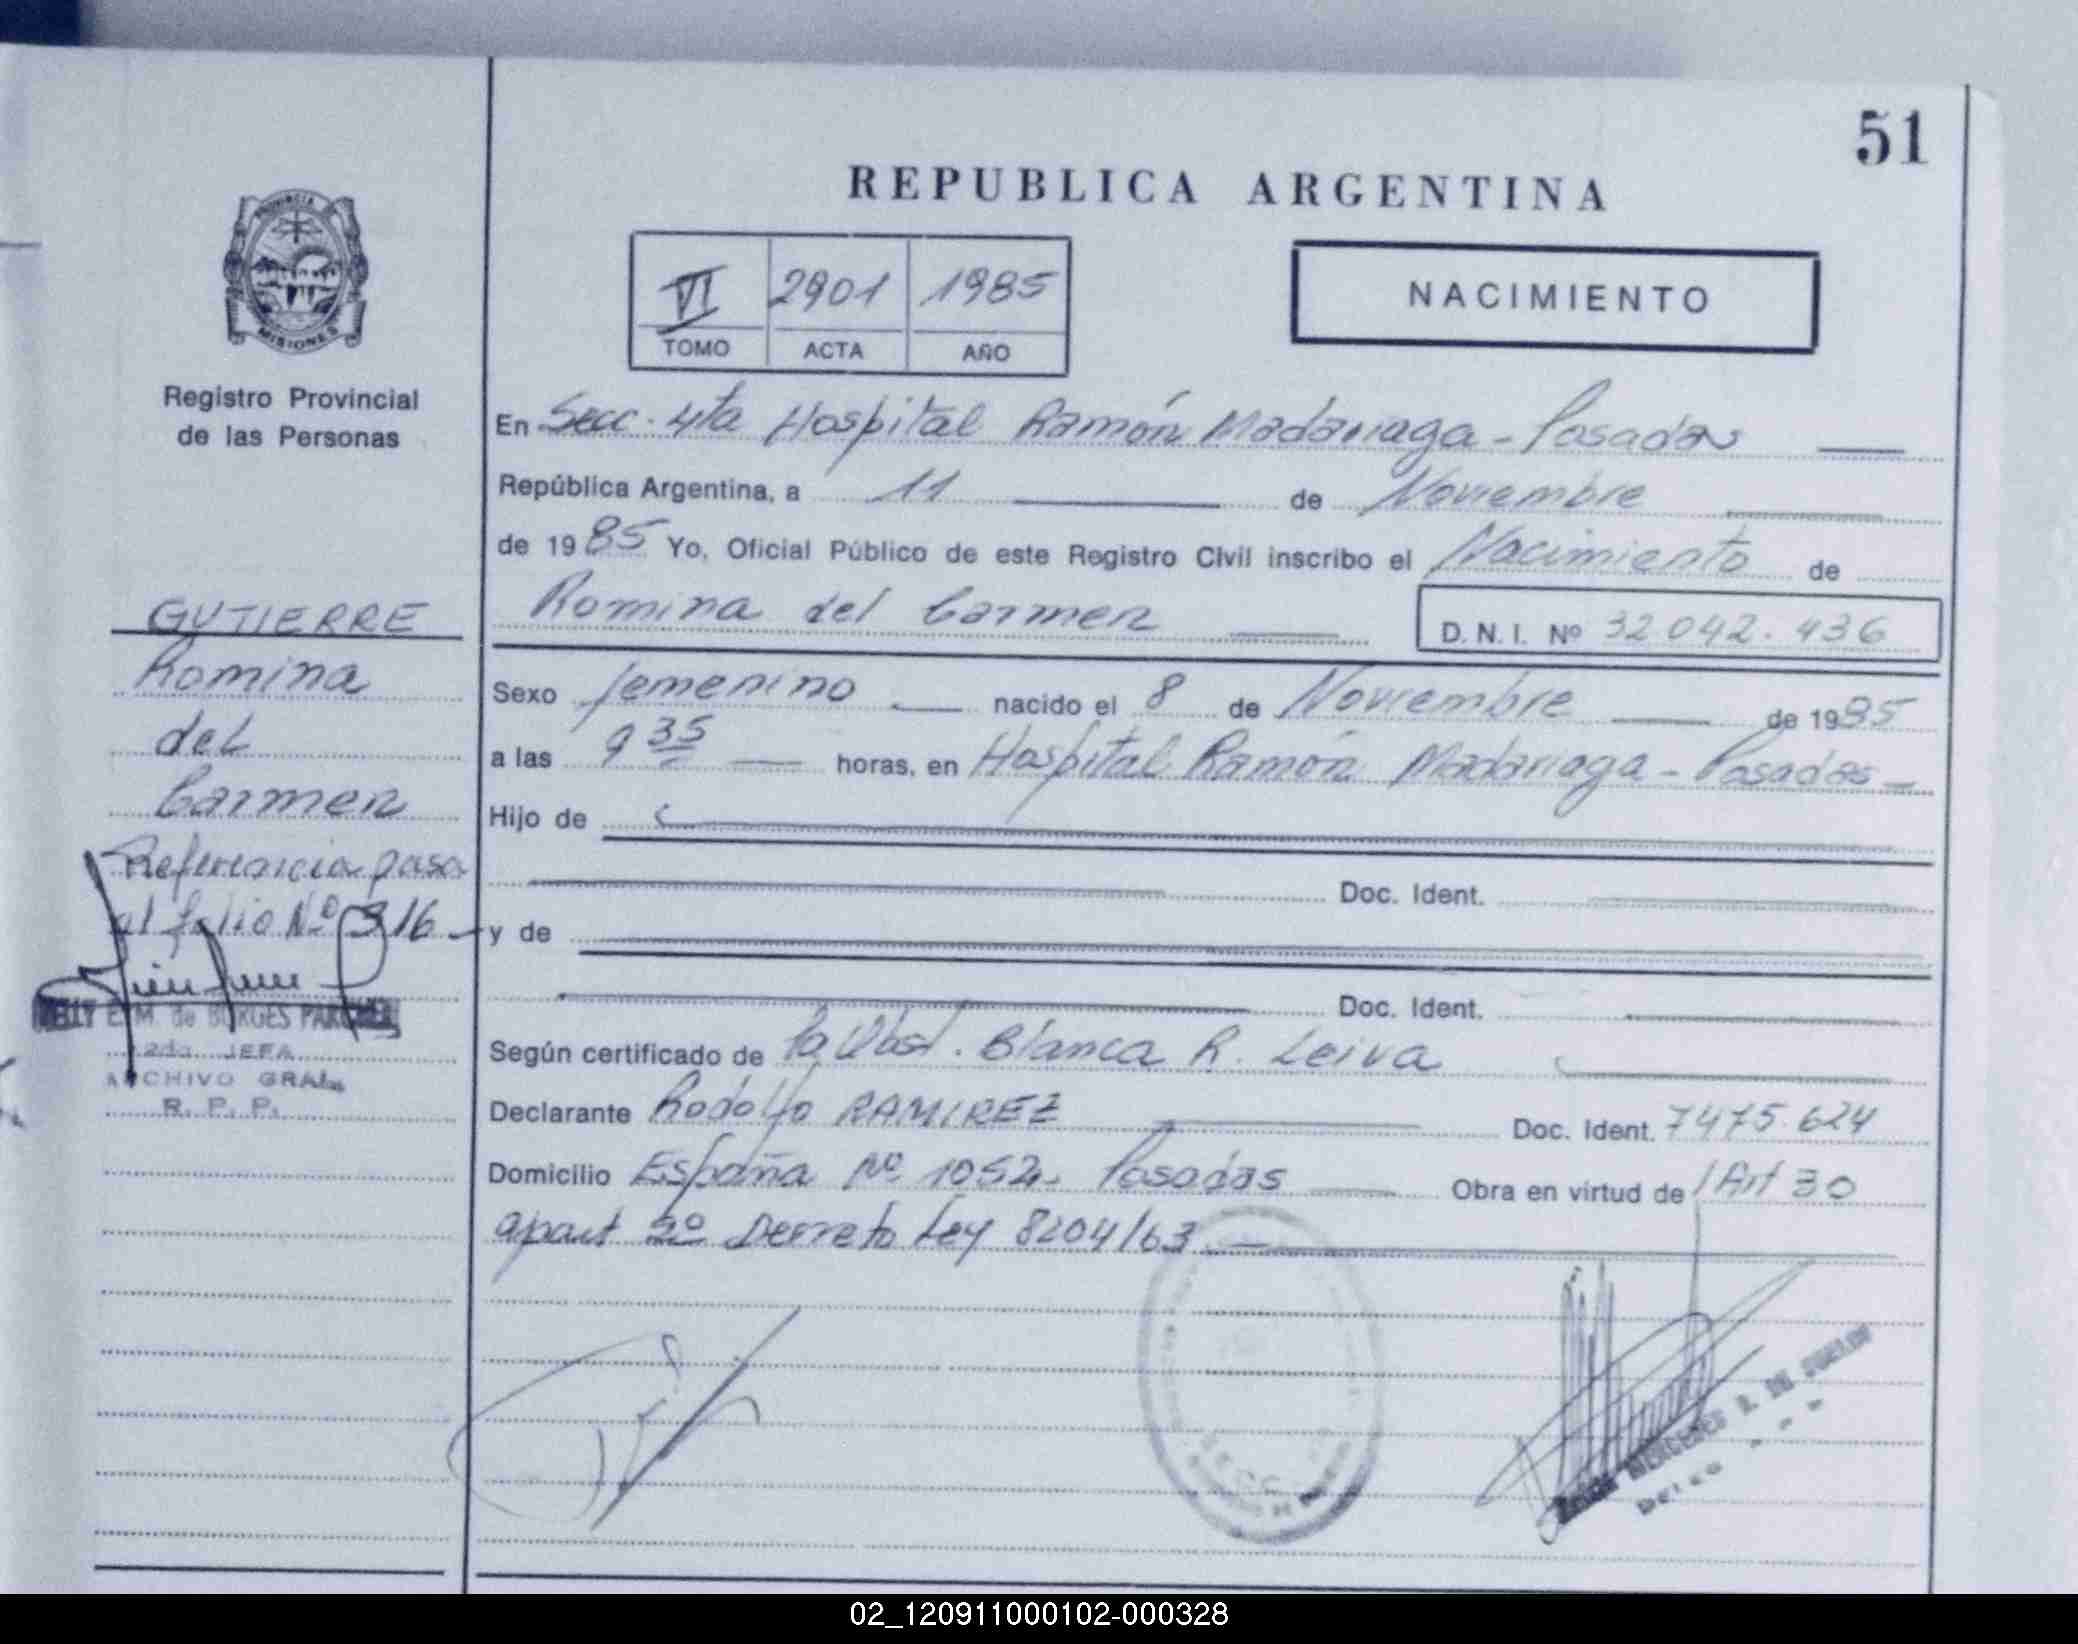 51
REPUBLICA ARGENTINA
PROVINCIA DE
MISIONES
VI 2901 1985
TOMO ACTA AÑO
NACIMIENTO
Registro Provincial
de las Personas
En Secc. 4ta Hospital Ramón Madariaga - Posadas
República Argentina, a 11 de Noviembre
de 1985 Yo, Oficial Público de este Registro Civil inscribo el Nacimiento de
Romina del Carmen
D. N. I. Nº 32 042. 436
GUTIERRE
Romina
del
Carmen
Referencia pasa
al folio Nº 316
E. M. de BORGES
2da. JEFA
ARCHIVO GRAL.
R. P. P.
Sexo femenino nacido el 8 de Noviembre de 1985
a las 9 35 horas, en Hospital Ramón Madariaga - Posadas
Hijo de
Doc. Ident.
y de
Doc. Ident.
Según certificado de la Obst. Blanca R. Leiva
Declarante Rodolfo RAMIREZ Doc. Ident. 7475.624
Domicilio España Nº 1052. Posadas Obra en virtud de Art 30
apart 2º Decreto Ley 8204/63
MERCEDES
02_120911000102-000328